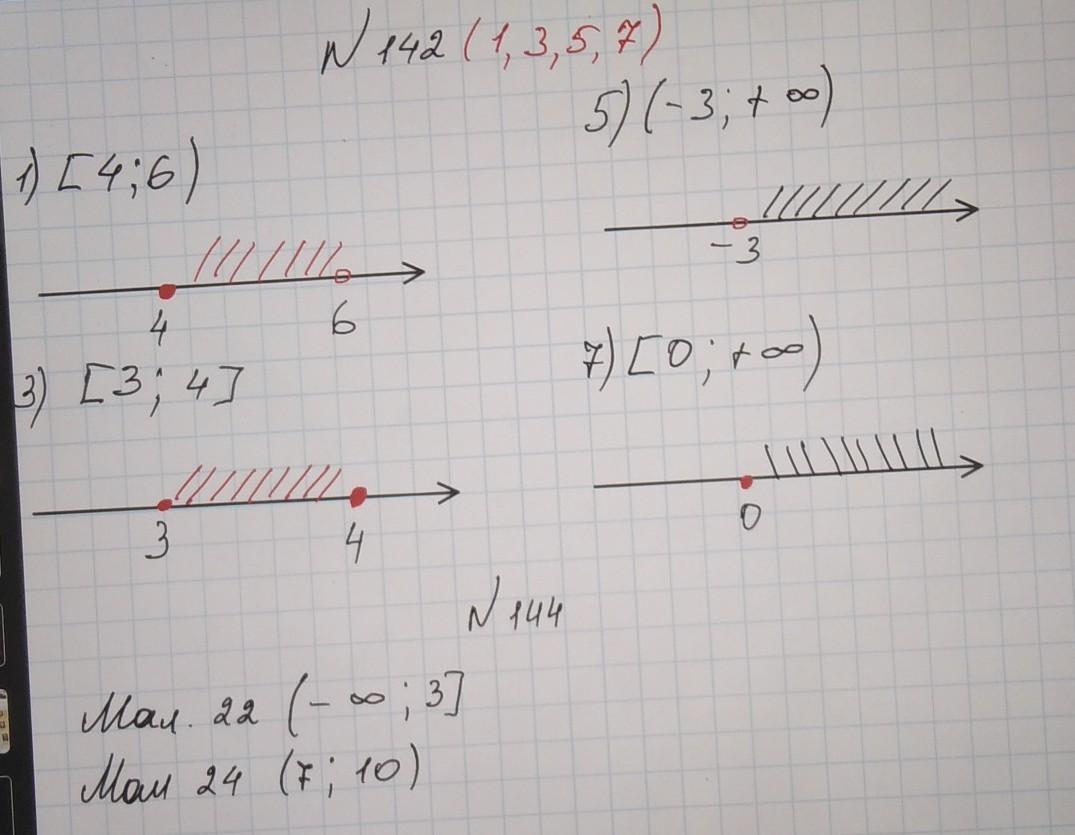 N 142 (1, 3, 5, 7)
1) [4; 6)
4 6
3) [3; 4]
3 4
5) (-3; + ∞)
-3
7) [0; +∞)
0
N 144
Мал. 22 (- ∞; 3]
Мал 24 (7; 10)